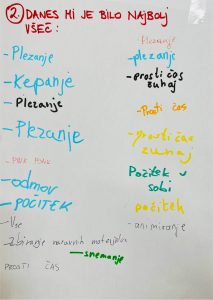 2. DANES MI JE BILO NAJBOLJ
VŠEČ:
- Plezanje
- Kepanje
- Plezanje
- Plezanje
- PINK PONK
- odmov
- POČITEK
- Vse
- zbiranje naravnih materjalov
- snemanje
PROSTI ČAS
- plezanje
- plezanje
- prosti čas
zunaj
- Prosti čas
- prosti čas
zunaj
Počitek v
sobi
počitek
- animiranje